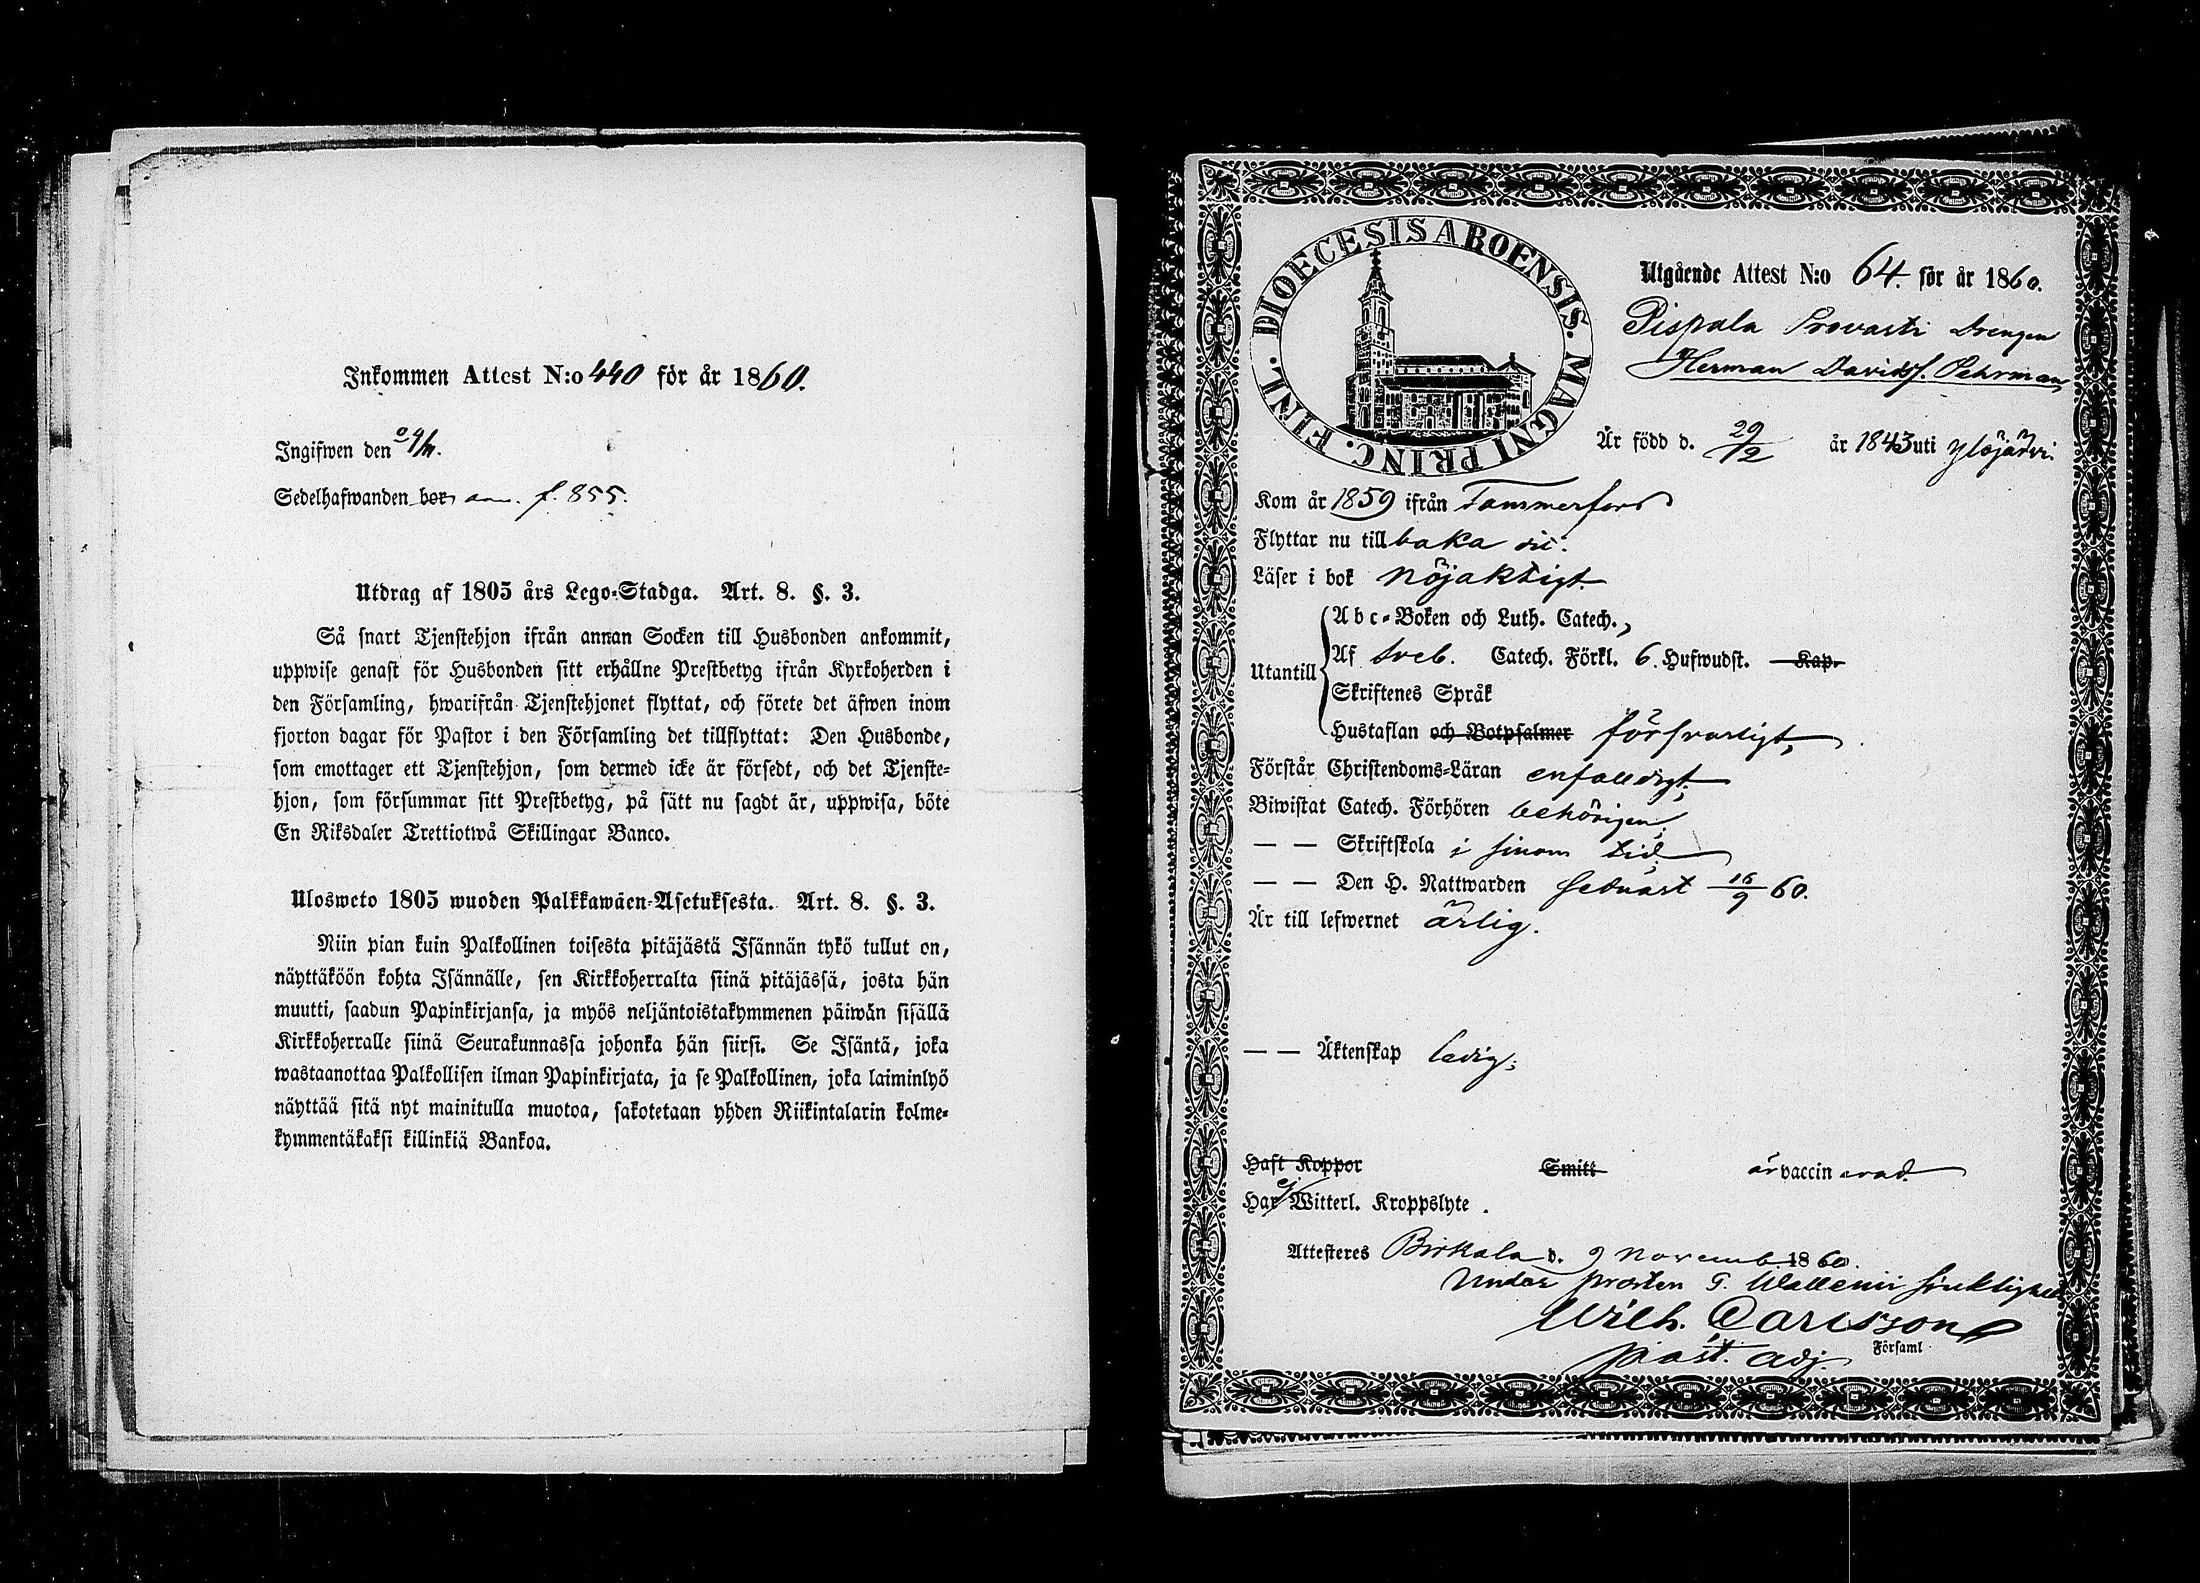 Inkommen Attest N:o 440 för år 1860.
Ingifwen den 9/11.
Sedelhafwanden bor ann. f. 855.
Utdrag af 1805 års Lego-Stadga. Art. 8. §. 3.
Så snart Tjenstehjon ifrån annan Socken till Husbonden ankommit,
uppwise genast för Husbonden sitt erhållne Prestbetyg ifrån Kyrkoherden i
den Församling, hwarifrån Tjenstehjonet flyttat, och förete det äfwen inom
fjorton dagar för Pastor i den Församling det tillflyttat: Den Husbonde,
som emottager ett Tjenstehjon, som dermed icke är försedt, och det Tjenste-
hjon, som försummar sitt Prestbetyg, på sätt nu sagdt är, uppwisa, böte
En Riksdaler Trettiotwå Skillingar Banco.
Ulosweto 1805 wuoden Palkkawäen-Asetuksesta. Art. 8. §. 3.
Niin pian kuin Palkollinen toisesta pitäjästä Isännän tykö tullut on,
näyttäköön kohta Isännälle, sen Kirkkoherralta siinä pitäjässä, josta hän
muutti, saadun Papinkirjansa, ja myös neljäntoistakymmenen päiwän sisällä
Kirkkoherralle siinä Seurakunnassa johonka hän siirsi. Se Isäntä, joka
wastaanottaa Palkollisen ilman Papinkirjata, ja se Palkollinen, joka laiminlyö
näyttää sitä nyt mainitulla muotoa, sakotetaan yhden Riikintalarin kolme-
kymmentäkaksi killinkiä Bankoa.
DIOECESIS ABOENSIS. MAGNI PRINC. FINL.
Utgående Attest N:o 64. för år 1860.
Pispala Provasti Drengen
Herman Davidss. Oehrman
Är född d. 29/12 år 1843 uti Ylöjärvi.
Kom år 1859 ifrån Tammerfors
Flyttar nu tillbaka dit.
Läser i bok nöjaktigt.
Utantill
Abc-Boken och Luth. Catech.,
Af Sveb. Catech. Förkl. 6. Hufwudst. Kap.
Skriftenes Språk
Hustaflan och Botpsalmer försvarligt,
Förstår Christendoms-Läran enfaldigt;
Biwistat Catech. Förhören behörigen;
— — Skriftskola i sinom tid
— — Den H. Nattwarden sednast 16/9 60.
Är till lefwernet ärlig.
— — Äktenskap ledig;
Haft Koppor Smitt är vaccinerad.
Har ej Witterl. Kroppslyte.
Attesteres Birkala d. 9 Novemb. 1860.
Under prosten G. Wallenii sjuklighet
Wilh. Carlsson
past. adj.
Församl